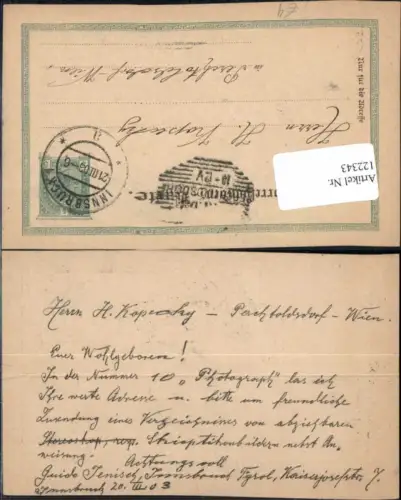 Artikel Nr.
122343
Nur für die Adresse
Herrn H. Kopecsky
in Perchtoldsdorf Wien
INNSBRUCK
21 III 03
Herrn H. Kopecsky – Pachtoldsdorf – Wien.
Euer Wohlgeboren!
In der Nummer 10 „Photograph" las ich
Ihre werte Adresse u. bitte um freundliche
Zusendung eines Verzeichnisses von abziehbaren
Stereoskop, resp. Strippbilder nebst An-
weisung.
Achtungsvoll
Guido Jenisch, Innsbruck Tyrol, Kaiserjosefstr. 7.
Innsbruck 20. III 03